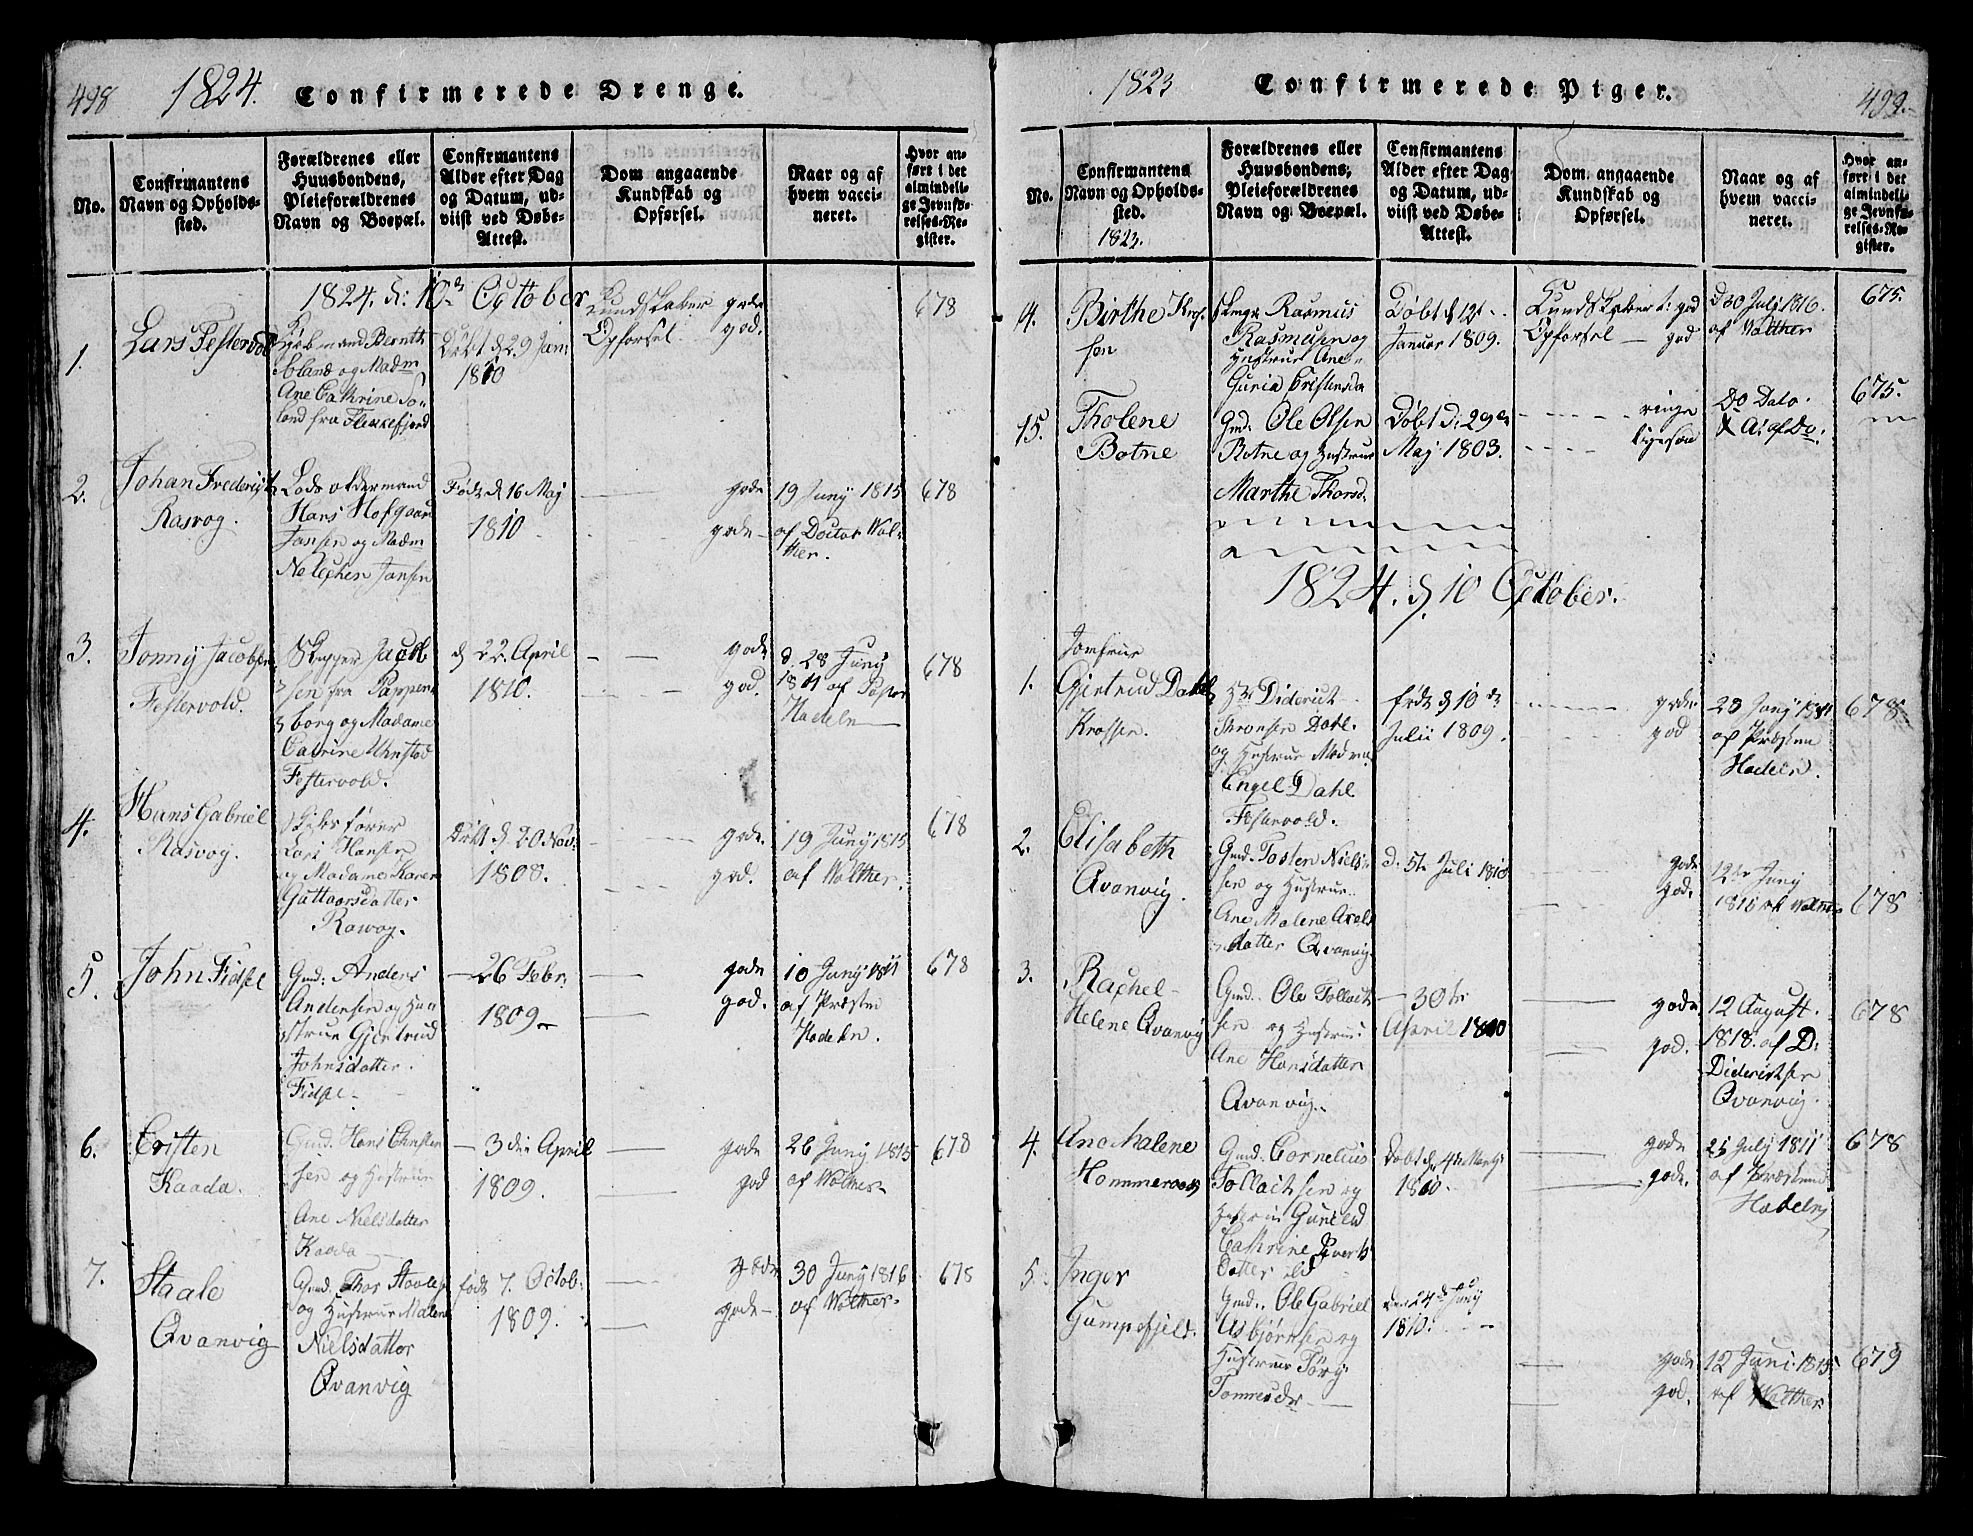 498
1824.
Confirmerede Drenge.
No.
Confirmantens
Navn og Opholds-
sted.
Forældrenes eller
Huusbondens,
Pleieforældrenes
Navn og Boepæl.
Confirmantens
Alder efter Dag
og Datum, ud-
viist ved Døbe-
Attest.
Dom angaaende
Kundskab og
Opførsel.
Naar og af
hvem vacci-
neret.
Hvor an-
ført i det
almindeli-
ge Jevnfø-
relses-Re-
gister.
1824. d: 10de October
1.
Lars Festervold
Kjøbmand Bernth
Soland og Madm
Ane Cathrine So-
land fra Flekkefjord
Døbt d 29 Juni
1810
Kundskaber gode
Opførsel. god.
678
2.
Johan Frederich
Rasvog.
Lods oldermand
Hans Hofgaard
Jansen og Madm
Jansen
Født d 16 Maj
1810
gode
gode
19 Juny 1815
af Doctor Wal-
ther.
678
3.
Tonny Jacobsen
Festervold.
Skipper Jacob-
sen fra Pappen-
borg og Madame
Catrine Uhnstad
Festervold.
d 22 April
1810.
gode
god.
d. 28 Juny
1811 af Pastor
Hadeln
678
4.
Hans Gabriel
Rasvog.
Skibsfører
Lars Hansen
og Madame Karen
Guttormsdatter
Rasvog.
Døbt d. 20 Nov:
1808.
gode.
god.
19 Juny 1815
af Walther.
678
5.
John Fidsel
Gmd: Anders
Andersen og Hu-
strue Gjertrud
Johnsdatter.
Fidsel
26 Febr:
1809
gode
god.
10 Juny 1811
af Præsten
Hadeln.
678
6.
Cristen
Kaada.
Gmd. Hans Christen
sen og Hustrue
Ane Nielsdatter
Kaada
3die April
1809.
gode
god
26 Juny 1815
af Walther
678
7.
Staale
Qvanvig
Gmd. Thor Staales
og Hustrue Malene
Nielsdatter
Qvanvig
født 7. Octob:
1809.
gode
gode
30 Juny 1816
af Walther
678
1823
Confirmerede Piger.
499.
No.
Confirmantens
Navn og Opholds-
sted.
1823.
Forældrenes eller
Huusbondens,
Pleieforældrenes
Navn og Boepæl.
Confirmantens
Alder efter Dag
og Datum, ud-
viist ved Døbe-
Attest.
Dom angaaende
Kundskab og
Opførsel.
Naar og af
hvem vacci-
neret.
Hvor an-
ført i det
almindeli-
ge Jevnfø-
relses-Re-
gister.
14.
Birthe
Rasmus
Rasmusen og
Hustrue Ane
Guria Cristensda
Døbt d 12t
Januar 1809.
Kundskaber t: god
Opførsel god
d 30 July 1816.
af Walther
675.
15.
Tholene
Botne
Gmd. Ole Olsen
Botne og Hustrue
Marthe Thorsd.
Døbt d: 29de
Maj 1803.
ringe
ligesaa
Do Dato.
675.
1824. d. 10 October.
1.
Jomfrue
Gjertrud Dahl
Hr Diderich
Thronsen Dahl.
og Hustrue Madme
Engel Dahl
Festervold.
født d 10de
Julii 1809.
gode
god
28 Juny 1811
af Præsten
Hadeln.
678
2.
Elisabeth
Qvanvig.
Gmd. Tosten Niels-
sen og Hustrue
Ane Malene Axels
datter Qvanvig
d. 5te Juli 1810
gode
god.
12te Juny
678
3.
Rachel
Helene Qvanvig
Gmd. Ole Tollach
sen og Hustrue
Ane Hansdatter
Qvanvig.
30te
April 1810
gode
god.
12 August.
1818. af D:
Diderichsen
Qvanvig.
678
4.
Ane Malene
Gmd. Cornelius
Tollachsen og
Hustrue Gunild
Cathrine Sivert
datter
Døbt d 4de Marty
1810.
gode
gode.
25 July 1811
af Præsten
Hadeln
678
5.
Inger
Gumpefjeld.
Gmd. Ole Gabriel
Asbjørnsen og
Hustrue Tørj
Tønnesdr
den 24de Juny
1810.
gode
god.
12 Juni 1815
af Walther
679